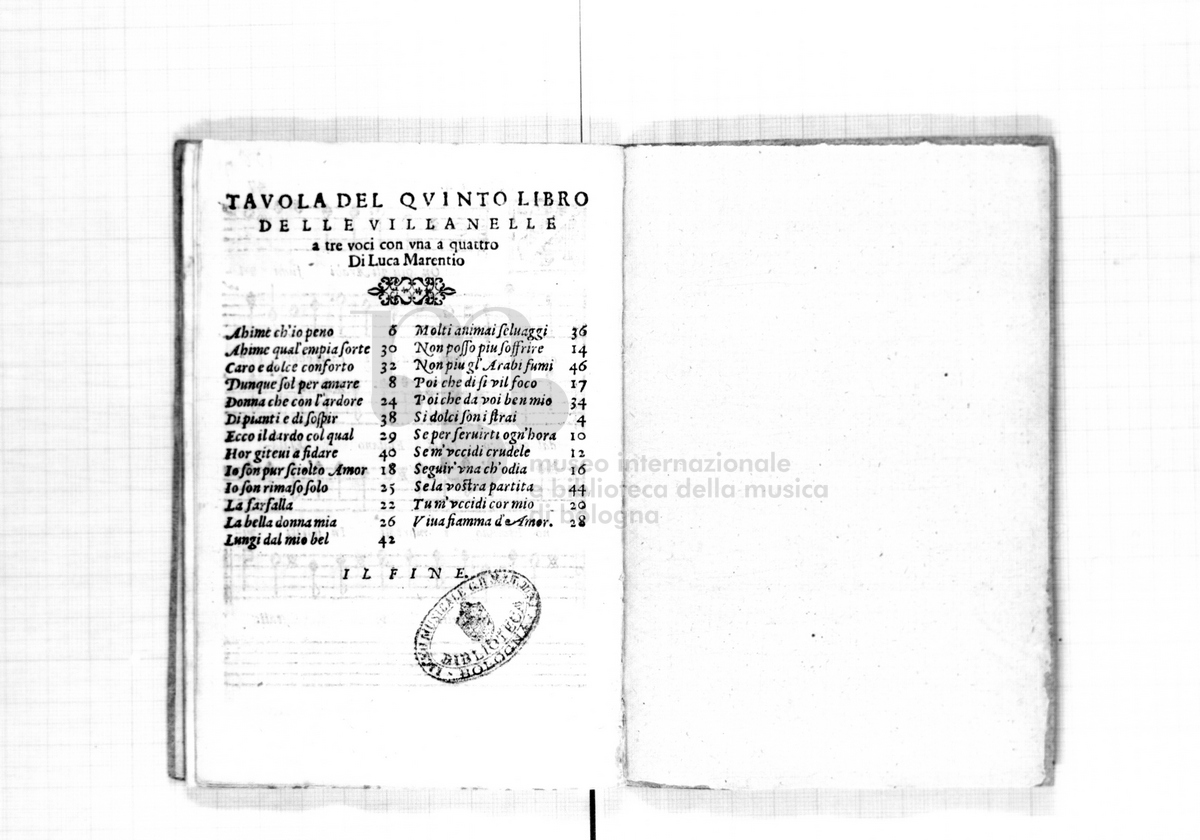 TAVOLA DEL QVINTO LIBRO
DELLE VILLANELLE
a tre voci con vna a quattro
Di Luca Marentio
Ahime ch'io peno 6
Ahime qual'empia ſorte 30
Caro e dolce conforto 32
Dunque ſol per amare 8
Donna che con l'ardore 24
Di pianti e di ſoſpir 38
Ecco il dardo col qual 29
Hor giteui a fidare 40
Io ſon pur ſciolto Amor 18
Io ſon rimaſo ſolo 25
La farfalla 22
La bella donna mia 26
Lungi dal mio bel 42
Molti animai ſeluaggi 36
Non poſſo piu ſoffrire 14
Non piu gl'Arabi fumi 46
Poi che di ſi vil foco 17
Poi che da voi ben mio 34
Si dolci ſon i ſtrai 4
Se per ſeruirti ogn'hora 10
Se m'vccidi crudele 12
Seguir'vna ch'odia 16
Se la voſtra partita 44
Tu m'vccidi cor mio 20
Viua fiamma d'Amor. 28
IL FINE.
BIBLIOTECA
BOLOGNA
museo internazionale
e biblioteca della musica
di bologna